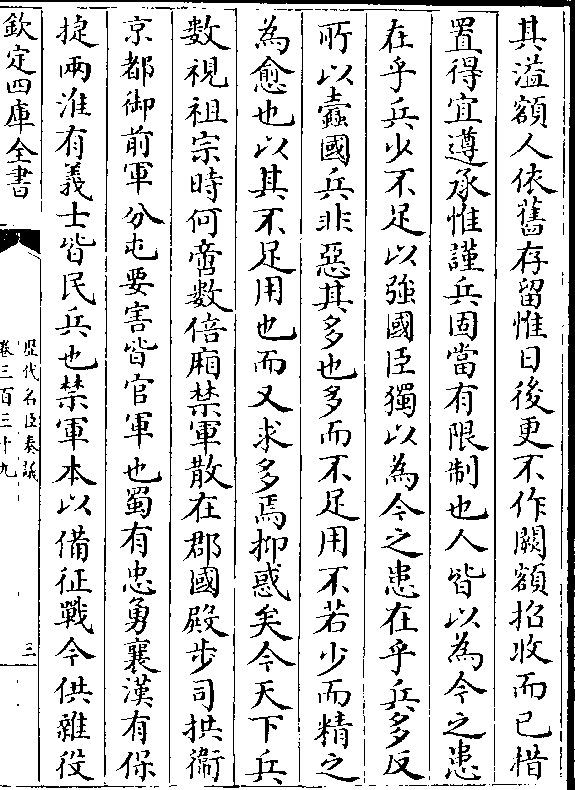 其溢額人依舊存留惟日後更不作闕額招收而已措
置得宜遵承惟謹兵固當有限制也人皆以為今之患
在乎兵少不足以強國臣獨以為今之患在乎兵多反
所以蠧國兵非惡其多也多而不足用不若少而精之
為愈也以其不足用也而又求多焉抑惑矣今天下兵
數視祖宗時何啻數倍廂禁軍散在郡國殿步司拱衞
京都御前軍分屯要害皆官軍也蜀有忠勇襄漢有保
捷兩淮有義士皆民兵也禁軍本以備征戰今供雜役
欽定四庫全書
歷代名臣奏議
卷三百三十九
三